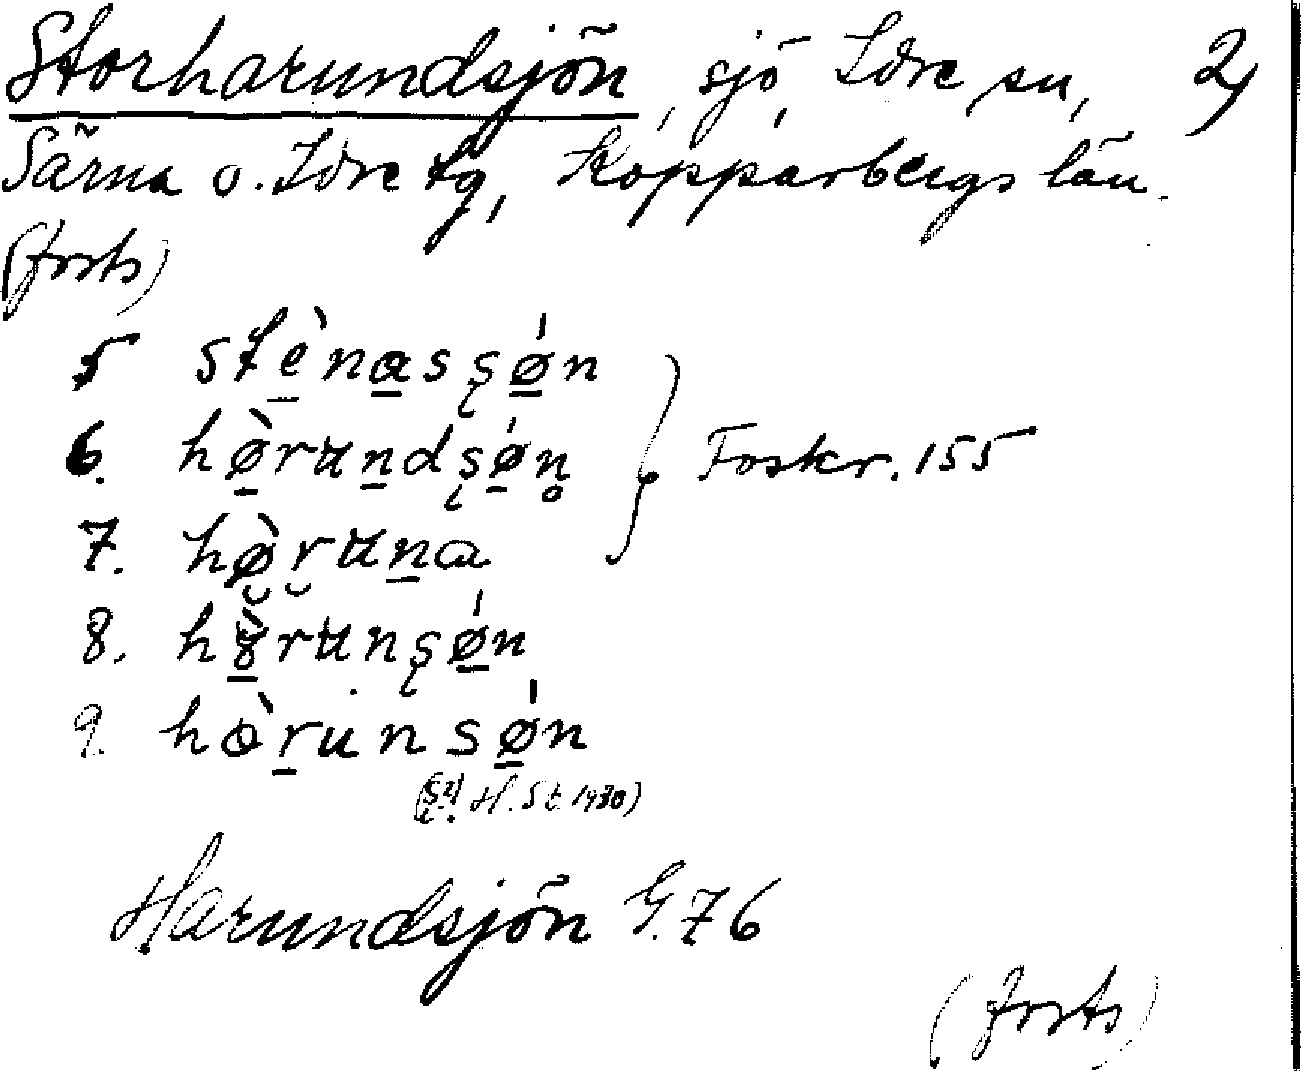 Storharundsjön, sjö, Idre sn, 2)
Särna o. Idre tg, Kopparbergs län.
(forts)
5 stè̠na̠sşǿ̠n
6. hø̠̀rʉn̠dşǿ̠n̥
7. hø̠̀rʉn̠a
8. hʉn şǿ̠n
9. hòr̠un sǿ̠n
H. St. 1930)
Foskr. 155
Harundsjön G. 76
(forts)